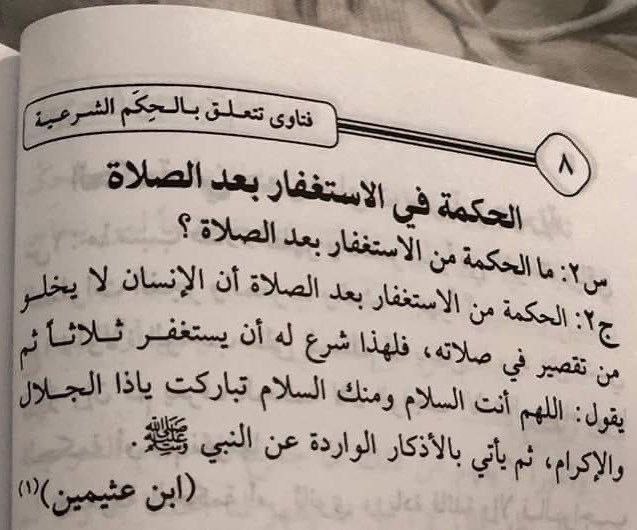 فتاوى تتعلق بالحِكَم الشرعية
٨
الحكمة في الاستغفار بعد الصلاة
س٢: ما الحكمة من الاستغفار بعد الصلاة ؟
ج٢: الحكمة من الاستغفار بعد الصلاة أن الإنسان لا يخلو
من تقصير في صلاته، فلهذا شرع له أن يستغفر ثلاثاً ثم
يقول: اللهم أنت السلام ومنك السلام تباركت ياذا الجلال
والإكرام، ثم يأتي بالأذكار الواردة عن النبي ﷺ.
(ابن عثيمين)(١)